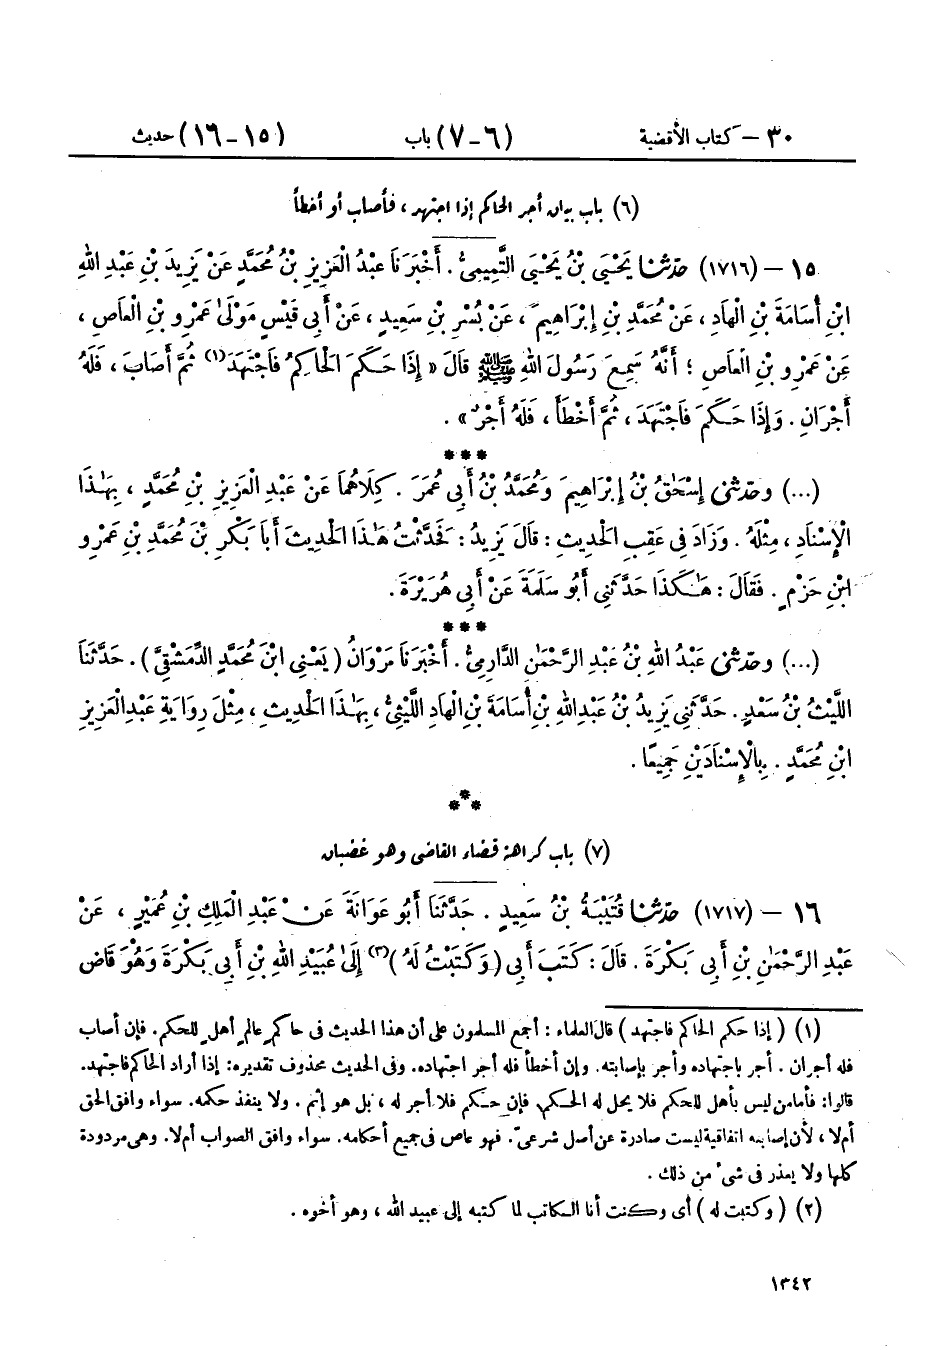 ٣٠ – كتاب الأقضية (٦-٧) باب (١٥-١٦) حديث
(٦) باب بيان أجر الحاكم إذا اجتهد ، فأصاب أو أخطأ
١٥ – (١٧١٦) حَدَّثَنَا يَحْيَىٰ بْنُ يَحْيَىٰ التَّمِيمِىُّ . أَخْبَرَنَا عَبْدُ الْعَزِيزِ بْنُ مُحَمَّدٍ عَنْ يَزِيدَ بْنِ عَبْدِ اللهِ
ابْنِ أُسَامَةَ بْنِ الْهَادِ ، عَنْ مُحَمَّدِ بْنِ إِبْرَاهِيمَ ، عَنْ بُسْرِ بْنِ سَعِيدٍ ، عَنْ أَبِى قَيْسٍ مَوْلَىٰ عَمْرِو بْنِ الْعَاصِ ،
عَنْ عَمْرِو بْنِ الْعَاصِ ؛ أَنَّهُ سَمِعَ رَسُولَ اللهِ ﷺ قَالَ « إِذَا حَكَمَ الْحَاكِمُ فَاجْتَهَدَ(١) ثُمَّ أَصَابَ ، فَلَهُ
أَجْرَانِ . وَإِذَا حَكَمَ فَاجْتَهَدَ ، ثُمَّ أَخْطَأَ ، فَلَهُ أَجْرٌ » .
***
(...) وحَدَّثَنِى إِسْحَٰقُ بْنُ إِبْرَاهِيمَ وَمُحَمَّدُ بْنُ أَبِى عُمَرَ . كِلَاهُمَا عَنْ عَبْدِ الْعَزِيزِ بْنِ مُحَمَّدٍ ، بِهَٰذَا
الْإِسْنَادِ ، مِثْلَهُ . وَزَادَ فِى عَقِبِ الْحَدِيثِ : قَالَ يَزِيدُ : فَحَدَّثْتُ هَٰذَا الْحَدِيثَ أَبَا بَكْرِ بْنَ مُحَمَّدِ بْنِ عَمْرِو
ابْنِ حَزْمٍ . فَقَالَ : هَٰكَذَا حَدَّثَنِى أَبُو سَلَمَةَ عَنْ أَبِى هُرَيْرَةَ .
***
(...) وحَدَّثَنِى عَبْدُ اللهِ بْنُ عَبْدِ الرَّحْمَٰنِ الدَّارِمِىُّ . أَخْبَرَنَا مَرْوَانُ ( يَعْنِى ابْنَ مُحَمَّدٍ الدِّمَشْقِىَّ ) . حَدَّثَنَا
اللَّيْثُ بْنُ سَعْدٍ . حَدَّثَنِى يَزِيدُ بْنُ عَبْدِ اللهِ بْنِ أُسَامَةَ بْنِ الْهَادِ اللَّيْثِىُّ ، بِهَٰذَا الْحَدِيثِ ، مِثْلَ رِوَايَةِ عَبْدِ الْعَزِيزِ
ابْنِ مُحَمَّدٍ . بِالْإِسْنَادَيْنِ جَمِيعًا .
***
(٧) باب كراهة قضاء القاضى وهو غضبان
١٦ – (١٧١٧) حَدَّثَنَا قُتَيْبَةُ بْنُ سَعِيدٍ . حَدَّثَنَا أَبُو عَوَانَةَ عَنْ عَبْدِ الْمَلِكِ بْنِ عُمَيْرٍ ، عَنْ
عَبْدِ الرَّحْمَٰنِ بْنِ أَبِى بَكْرَةَ . قَالَ : كَتَبَ أَبِى ( وَكَتَبْتُ لَهُ )(٢) إِلَىٰ عُبَيْدِ اللهِ بْنِ أَبِى بَكْرَةَ وَهُوَ قَاضٍ
(١) ( إذا حكم الحاكم فاجتهد ) قال العلماء : أجمع المسلمون على أن هذا الحديث فى حاكمٍ عالمٍ أهلٍ للحكم . فإن أصاب
فله أجران . أجر باجتهاده وأجر بإصابته . وإن أخطأ فله أجر اجتهاده . وفى الحديث محذوف تقديره : إذا أراد الحاكم فاجتهد .
قالوا : فأما من ليس بأهل للحكم فلا يحل له الحكم . فإن حكم فلا أجر له ، بل هو آثم . ولا ينفذ حكمه . سواء وافق الحق
أم لا ، لأن إصابته اتفاقية ليست صادرة عن أصل شرعىّ . فهو عاص فى جميع أحكامه . سواء وافق الصواب أم لا . وهى مردودة
كلها ولا يعذر فى شىء من ذلك .
(٢) ( وكتبت له ) أى وكنت أنا الكاتب لما كتبه إلى عبيد الله ، وهو أخوه .
١٣٤٢